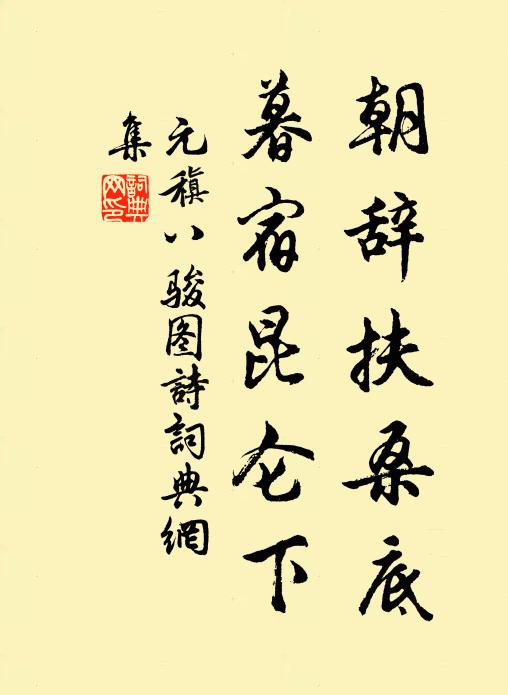 朝辞扶桑底
暮宿昆仑下
元稹八骏图詩詞典網
集
詞典
网印